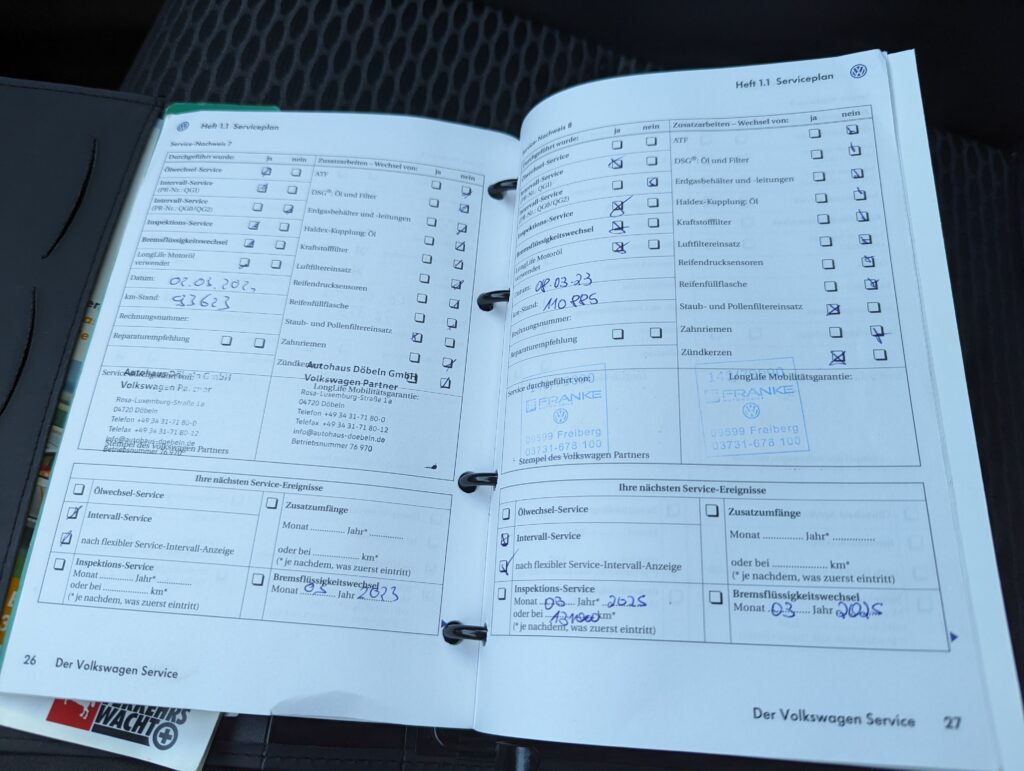 Heft 1.1 Serviceplan
Service-Nachweis 7
Durchgeführt wurde: ja nein
Ölwechsel-Service
Intervall-Service
(PR-Nr.: QG1)
Intervall-Service
(PR-Nr.: QG0/QG2)
Inspektions-Service
Bremsflüssigkeitswechsel
LongLife Motoröl
verwendet
Datum: 02.03.202
km-Stand: 93623
Rechnungsnummer:
Reparaturempfehlung
Zusatzarbeiten – Wechsel von: ja nein
ATF
DSG®: Öl und Filter
Erdgasbehälter und -leitungen
Haldex-Kupplung: Öl
Kraftstofffilter
Luftfiltereinsatz
Reifendrucksensoren
Reifenfüllflasche
Staub- und Pollenfiltereinsatz
Zahnriemen
Zündkerzen
Service durchgeführt von:
Autohaus Döbeln GmbH
Volkswagen Partner
Rosa-Luxemburg-Straße 1a
04720 Döbeln
Telefon +49 34 31-71 80-0
Telefax +49 34 31-71 80-12
info@autohaus-doebeln.de
Betriebsnummer 76 970
Stempel des Volkswagen Partners
Autohaus Döbeln GmbH
Volkswagen Partner
LongLife Mobilitätsgarantie:
Rosa-Luxemburg-Straße 1a
04720 Döbeln
Telefon +49 34 31-71 80-0
Telefax +49 34 31-71 80-12
info@autohaus-doebeln.de
Betriebsnummer 76 970
Ihre nächsten Service-Ereignisse
Ölwechsel-Service
Intervall-Service
nach flexibler Service-Intervall-Anzeige
Zusatzumfänge
Monat ............ Jahr* ..............
oder bei .................. km*
(* je nachdem, was zuerst eintritt)
Inspektions-Service
Monat ........... Jahr* ...........
oder bei ............... km*
(* je nachdem, was zuerst eintritt)
Bremsflüssigkeitswechsel
Monat 03 Jahr 2023
26 Der Volkswagen Service
VERKEHRS
WACHT
Heft 1.1 Serviceplan
Service-Nachweis 8
Durchgeführt wurde: ja nein
Ölwechsel-Service
Intervall-Service
(PR-Nr.: QG1)
Intervall-Service
(PR-Nr.: QG0/QG2)
Inspektions-Service
Bremsflüssigkeitswechsel
LongLife Motoröl
verwendet
Datum: 08.03.23
km-Stand: 110885
Rechnungsnummer:
Reparaturempfehlung
Zusatzarbeiten – Wechsel von: ja nein
ATF
DSG®: Öl und Filter
Erdgasbehälter und -leitungen
Haldex-Kupplung: Öl
Kraftstofffilter
Luftfiltereinsatz
Reifendrucksensoren
Reifenfüllflasche
Staub- und Pollenfiltereinsatz
Zahnriemen
Zündkerzen
Service durchgeführt von:
FRANKE
09599 Freiberg
03731-678 100
Stempel des Volkswagen Partners
LongLife Mobilitätsgarantie:
FRANKE
09599 Freiberg
03731-678 100
Ihre nächsten Service-Ereignisse
Ölwechsel-Service
Intervall-Service
nach flexibler Service-Intervall-Anzeige
Zusatzumfänge
Monat ............ Jahr* ..............
oder bei .................. km*
(* je nachdem, was zuerst eintritt)
Inspektions-Service
Monat 03 Jahr* 2025
oder bei km*
(* je nachdem, was zuerst eintritt)
Bremsflüssigkeitswechsel
Monat 03 Jahr 2025
Der Volkswagen Service 27